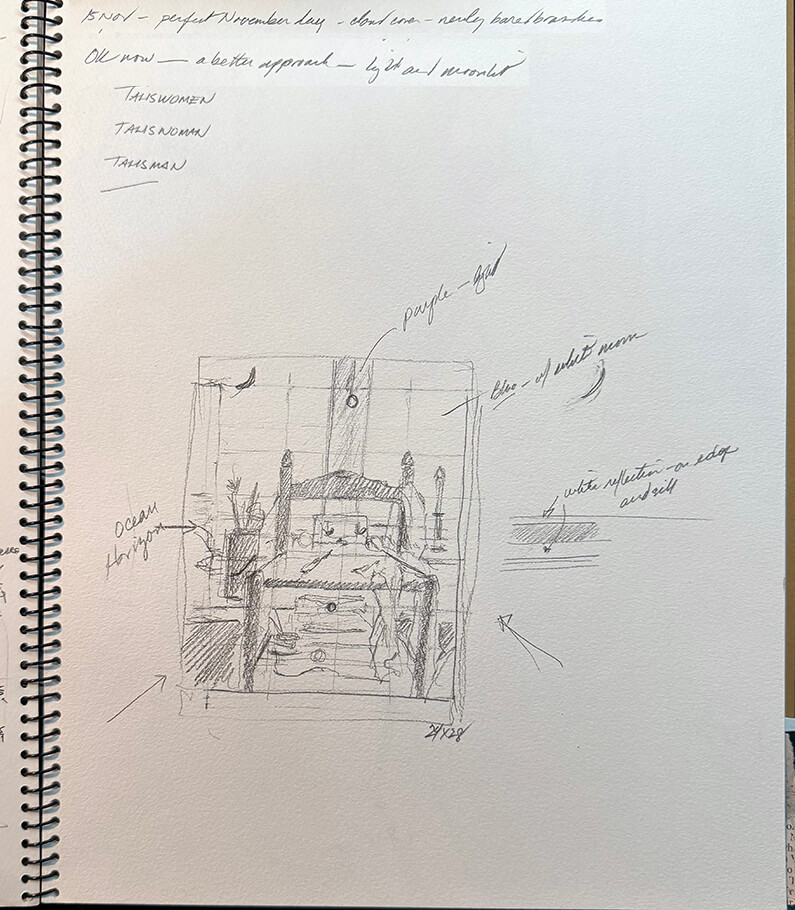 15 Nov – perfect November day – cloud cover – newly bared branches
OK now — a better approach — light and moonlit
TALISWOMEN
TALISWOMAN
TALISMAN
purple – light
Blue – w/ white moon
white reflection – on edge
and sill
Ocean
Horizon
24x28